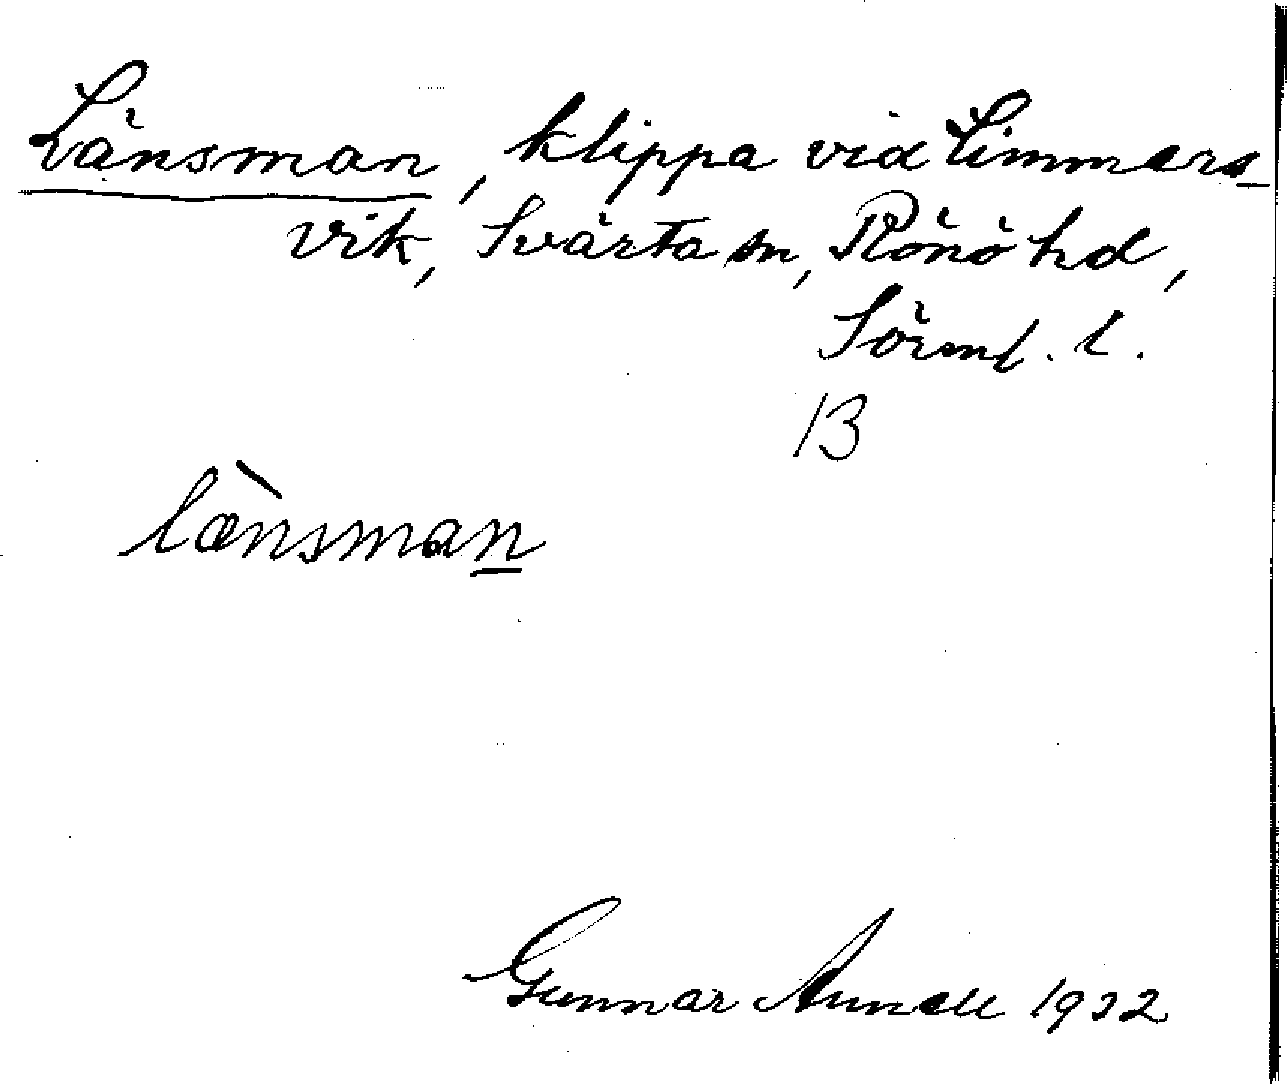 Länsman, klippa vid Limmers-
vik, Svärta sn, Rönö hd,
Sörml. l.
13
lænsman
Gunnar Amnell 1932